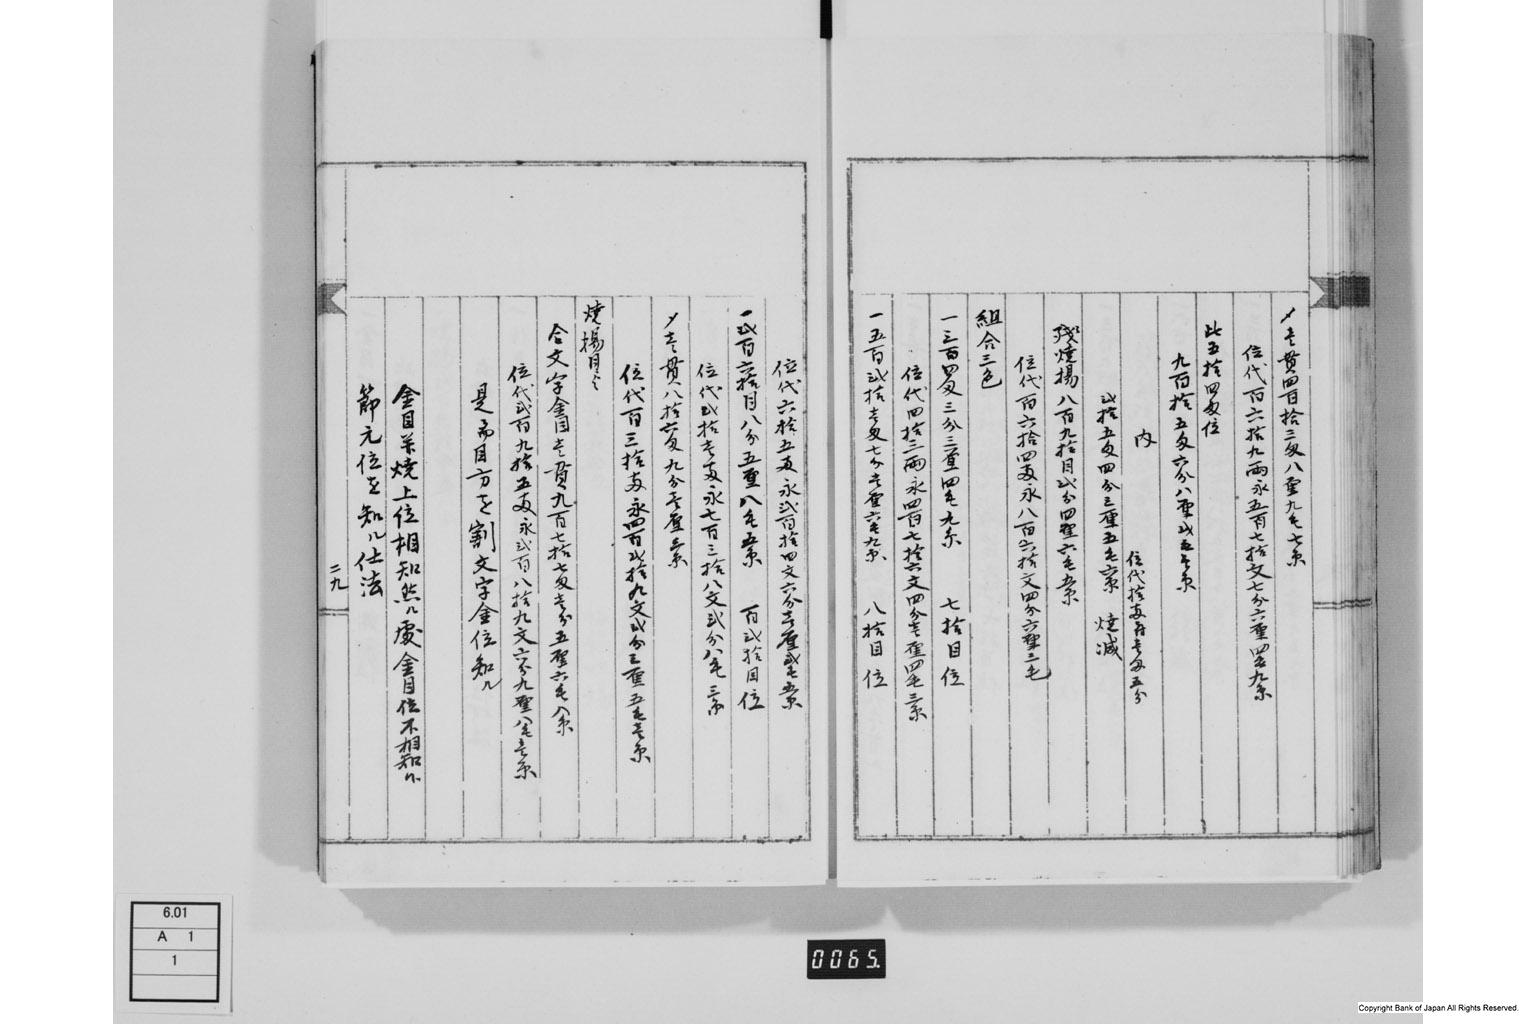 〆壱貫四百拾三匁八厘九毛七糸
位代百六拾九両永五百七拾文七分六厘四毛九糸
此五拾四匁位
九百拾五匁六分八厘弐毛壱糸
内
位代拾両
弐拾五匁四分三厘五毛六糸 焼減
残焼揚八百九拾目弐分四厘六毛五糸
位代百六拾四両永八百六拾文四分六厘三毛
組合三色
一三百四匁三分三厘四毛九糸 七拾目位
位代四拾三両永四百七拾六文四分壱厘四毛三糸
一五百弐拾壱匁七分壱厘六毛九糸 八拾目位
位代六拾五両永弐百拾四文六分壱厘弐毛五糸
一弐百六拾目八分五厘八毛五糸 百弐拾目位
位代弐拾壱両永七百三拾八文弐分八毛三糸
〆壱貫八拾六匁九分壱厘三糸
位代百三拾両永四百弐拾九文弐分三厘五毛壱糸
焼揚目〆
合文字金目壱貫九百七拾七匁壱分五厘六毛八糸
位代弐百九拾五両永弐百八拾九文六分九厘八毛壱糸
是ニ而目方を割文字金位知ル
金目並焼上位相知然ル處金目位不相知
節元位を知ル仕法
二九
6.01
A 1
1
0065.
Copyright Bank of Japan All Rights Reserved.